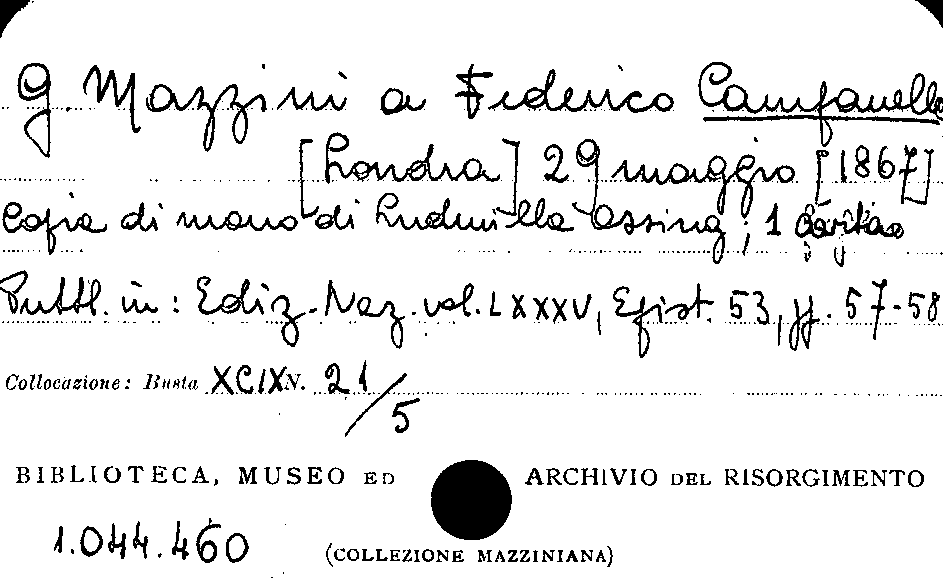 G. Mazzini a Federico Campanella
[Londra] 29 maggio [1867]
Copia di mano di Ludmilla Assing; 1
Pubbl. in: Ediz. Naz. vol. LXXXV, Epist. 53, pp. 57-58
Collocazione: Busta XCIX N. 21/5
BIBLIOTECA, MUSEO ED ARCHIVIO DEL RISORGIMENTO
1.044.460
(COLLEZIONE MAZZINIANA)